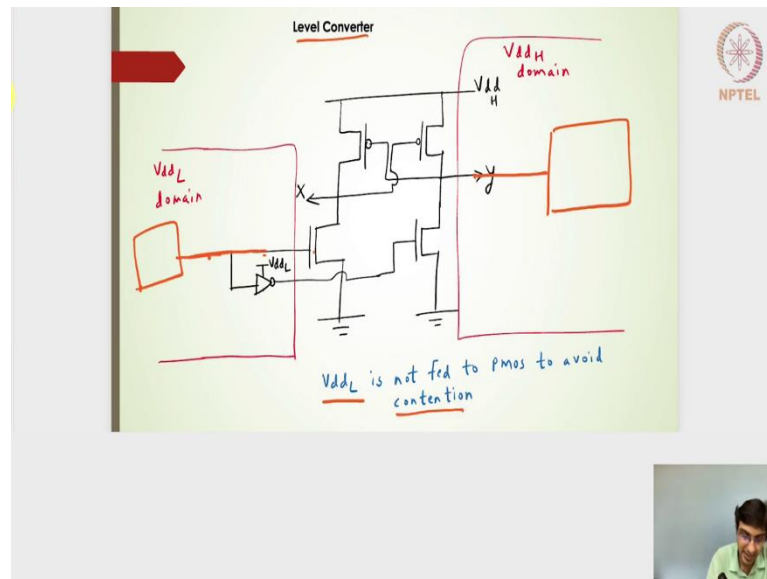 Level Converter
VddH
domain
NPTEL
Vdd
H
VddL
domain
X
y
VddL
VddL is not fed to PMOS to avoid
contention